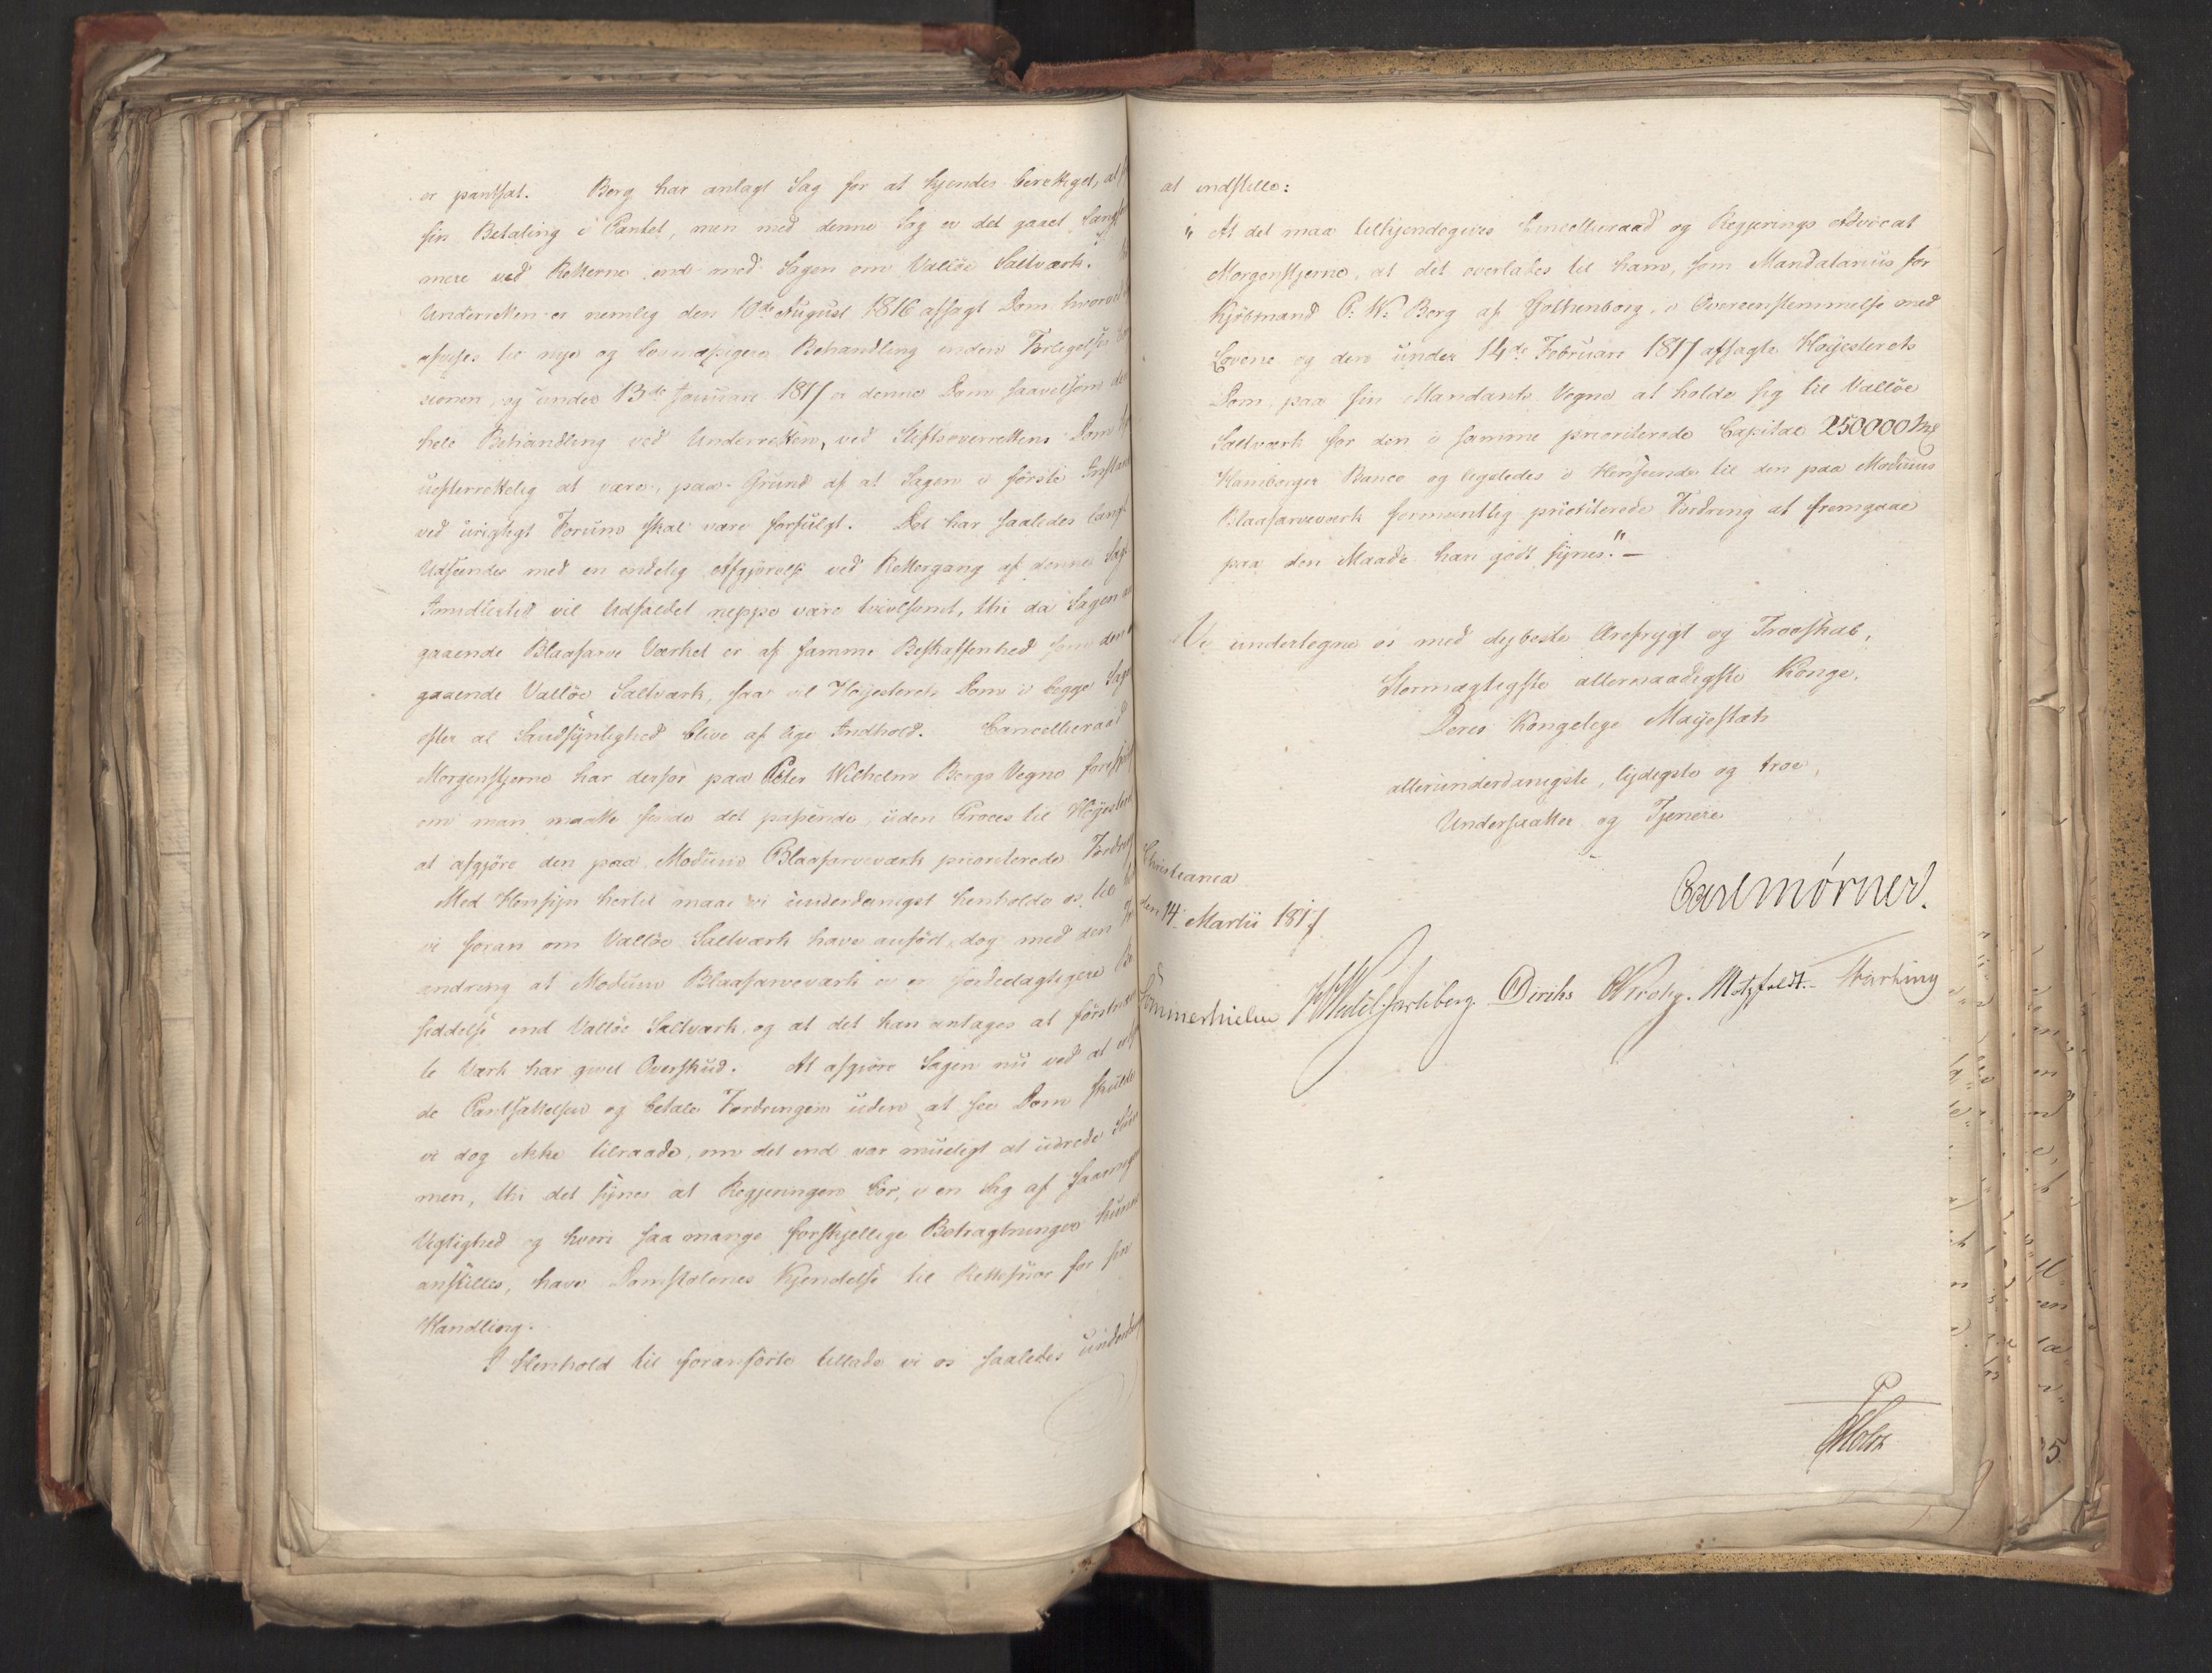 er pantsat. Berg har anlagt Sag for at kjendes berettiget, at
sin Betaling i Pantet, men med denne Sag er det gaaet lang
mere ved Retterne end med Sagen om Valløe Saltværk.
Underretten er nemlig den 10de August 1816 afsagt Dom, hvorved
afvises til nye og lovmæssigere Behandling inden
sionen, og under 13de Januari 1817 er denne Dom saavelsom den
hele Behandling ved Underretten, ved Stiftsoverrettens Dom
uefterrettelig at være, paa Grund af at Sagen i første Instan
ved urigtigt Forum skal være forfulgt. Det har saaledes lang
Udseender med en endelig Afgjørelse ved Rettergang af denne Sag
Imidlertid vil Udfaldet neppe være tvivlsomt, thi da Sagen
gaaende Blaafarve Værket er af samme Beskaffenhed som den
gaaende Valløe Saltværk, saa vil Høyesterets Dom i begge Sag
efter al Sandsynlighed blive af lige Indhold. Cancellieraad
Morgenstjerne har derfor paa Peter Wilhelm Bergs Vegne
om man maatte finde det passende, uden Proces til Høyeste
at afgjøre den paa Modums Blaafarveværk prioriterede Fordr
Med Hensyn hertil maae vi underdanigst henholde os til
vi foran om Valløe Saltværk have anført, dog med den
andring at Modums Blaafarveværk er en fordeelagtigere Be
siddelse end Valløe Saltværk, og at det kan antages at
te Værk har givet Overskud. At afgiøre Sagen nu ved at
de Pantsættelsen og betale Fordringen uden at see Dom skulde
vi dog ikke tilraade, om det end var mueligt at udrede Sum
men, thi det synes at Regjeringen bør, i en Sag af saamegen
Vigtighed og hvori saa mange forskjellige Betragtninger kunne
anstilles, have Domstolenes Kjendelse til Rettesnor for sin
Handling.
I Henhold til foranførte tillade vi os saaledes underdan
at indstille:
" At det maa tilkjendegives Cancellieraad og Regjerings Advocat
Morgenstjerne, at det overlades til ham, som Mandatarius for
Kjøbmand P. W. Berg af Gothenborg, i Overeenstemmelse med
Lovene og den under 14de Februari 1817 afsagte Høyesterets
Dom, paa sin Mandants Vegne at holde sig til Valløe
Saltværk for den i samme prioriterede Capital 250000 Mk
Hamborger Banco og ligeledes i Henseende til den paa Modums
Blaafarveværk formeentlig prioriterede Fordring at fremgaae
paa den Maade han godt synes." —
Vi undertegne os med dybeste Ærefrygt og Troeskab,
Stormægtigste allernaadigste Konge,
Deres Kongelige Mayestæts
allerunderdanigste, lydigste og troe,
Undersaatter og Tjenere
Christiania
den 14 Martii 1817
Carl Mörner.
Sommerhielm HWedel Jarlsberg. Diriks CKrohg. Motzfeldt. Harbing
Holst